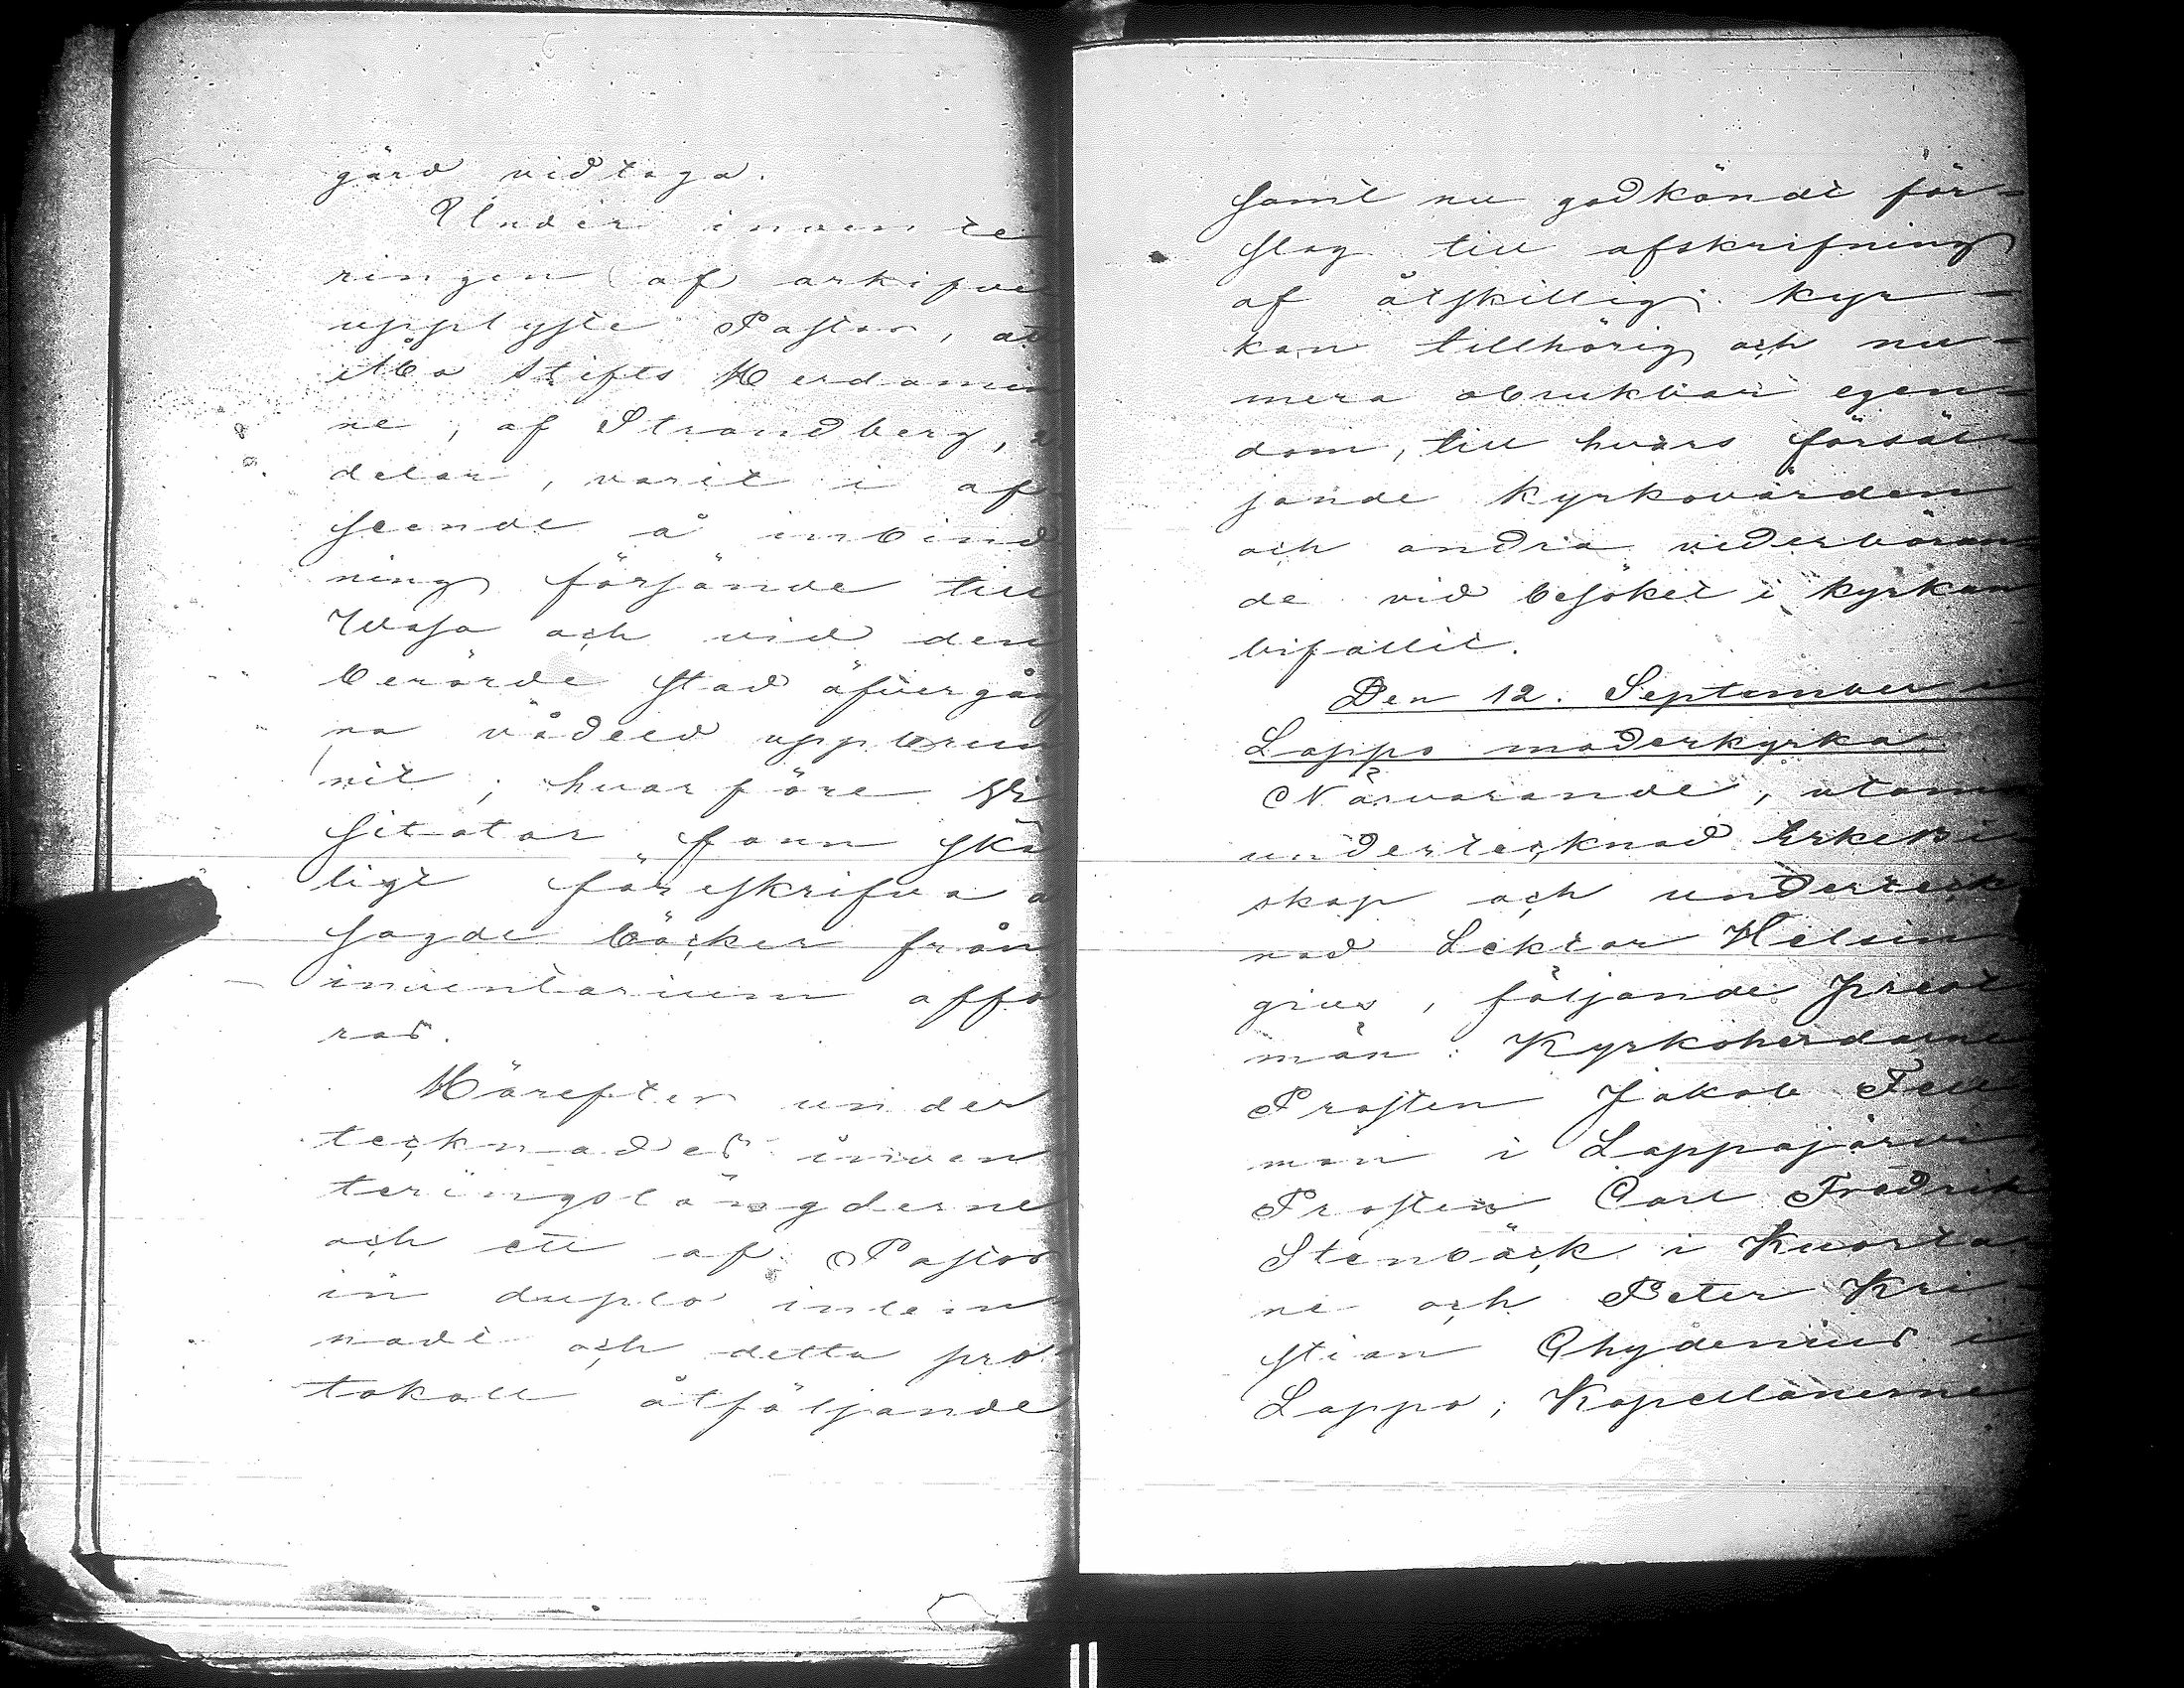 gärd vidtaga.
Under invente
ringen af arkifvet
upplyste Pastor, att
Åbo Stifts Herdamin
ne, af Strandberg, 2
delar, varit i af
seende å inbind
ning försände till
Wasa och vid den
berörde stad öfvergån
na vådeld uppbrun
nit; hvarföre Vi
sitator fann skä
ligt föreskrifva a
sagde böcker från
inventarium affö
ras.
Härefter under
tecknades inven
teringslängderne
och ett af Pastor
in duplo inlem
nadt och detta pro
tokoll åtföljande
samt nu godkändt för-
slag till afskrifning
af åtskillig kyr-
kan tillhörig och nu-
mera obrukbar egen-
dom, till hvars försäl-
jande kyrkovärden
och andra vederböran
de vid besöket i kyrkan
bifallit.
Den 12. September i
Lappo moderkyrka.
Närvarande, utom
undertecknad Erkebi
skop och underteck
nad Lektor Helsin
gius, följande prest
män: Kyrkoherdarne
Prosten Jakob Fell
man i Lappajärvi
Prosten Carl Fredrik
Stenbäck i Kuorta
ne och Peter Kri-
stian Chydenius i
Lappo; Kapellanerne